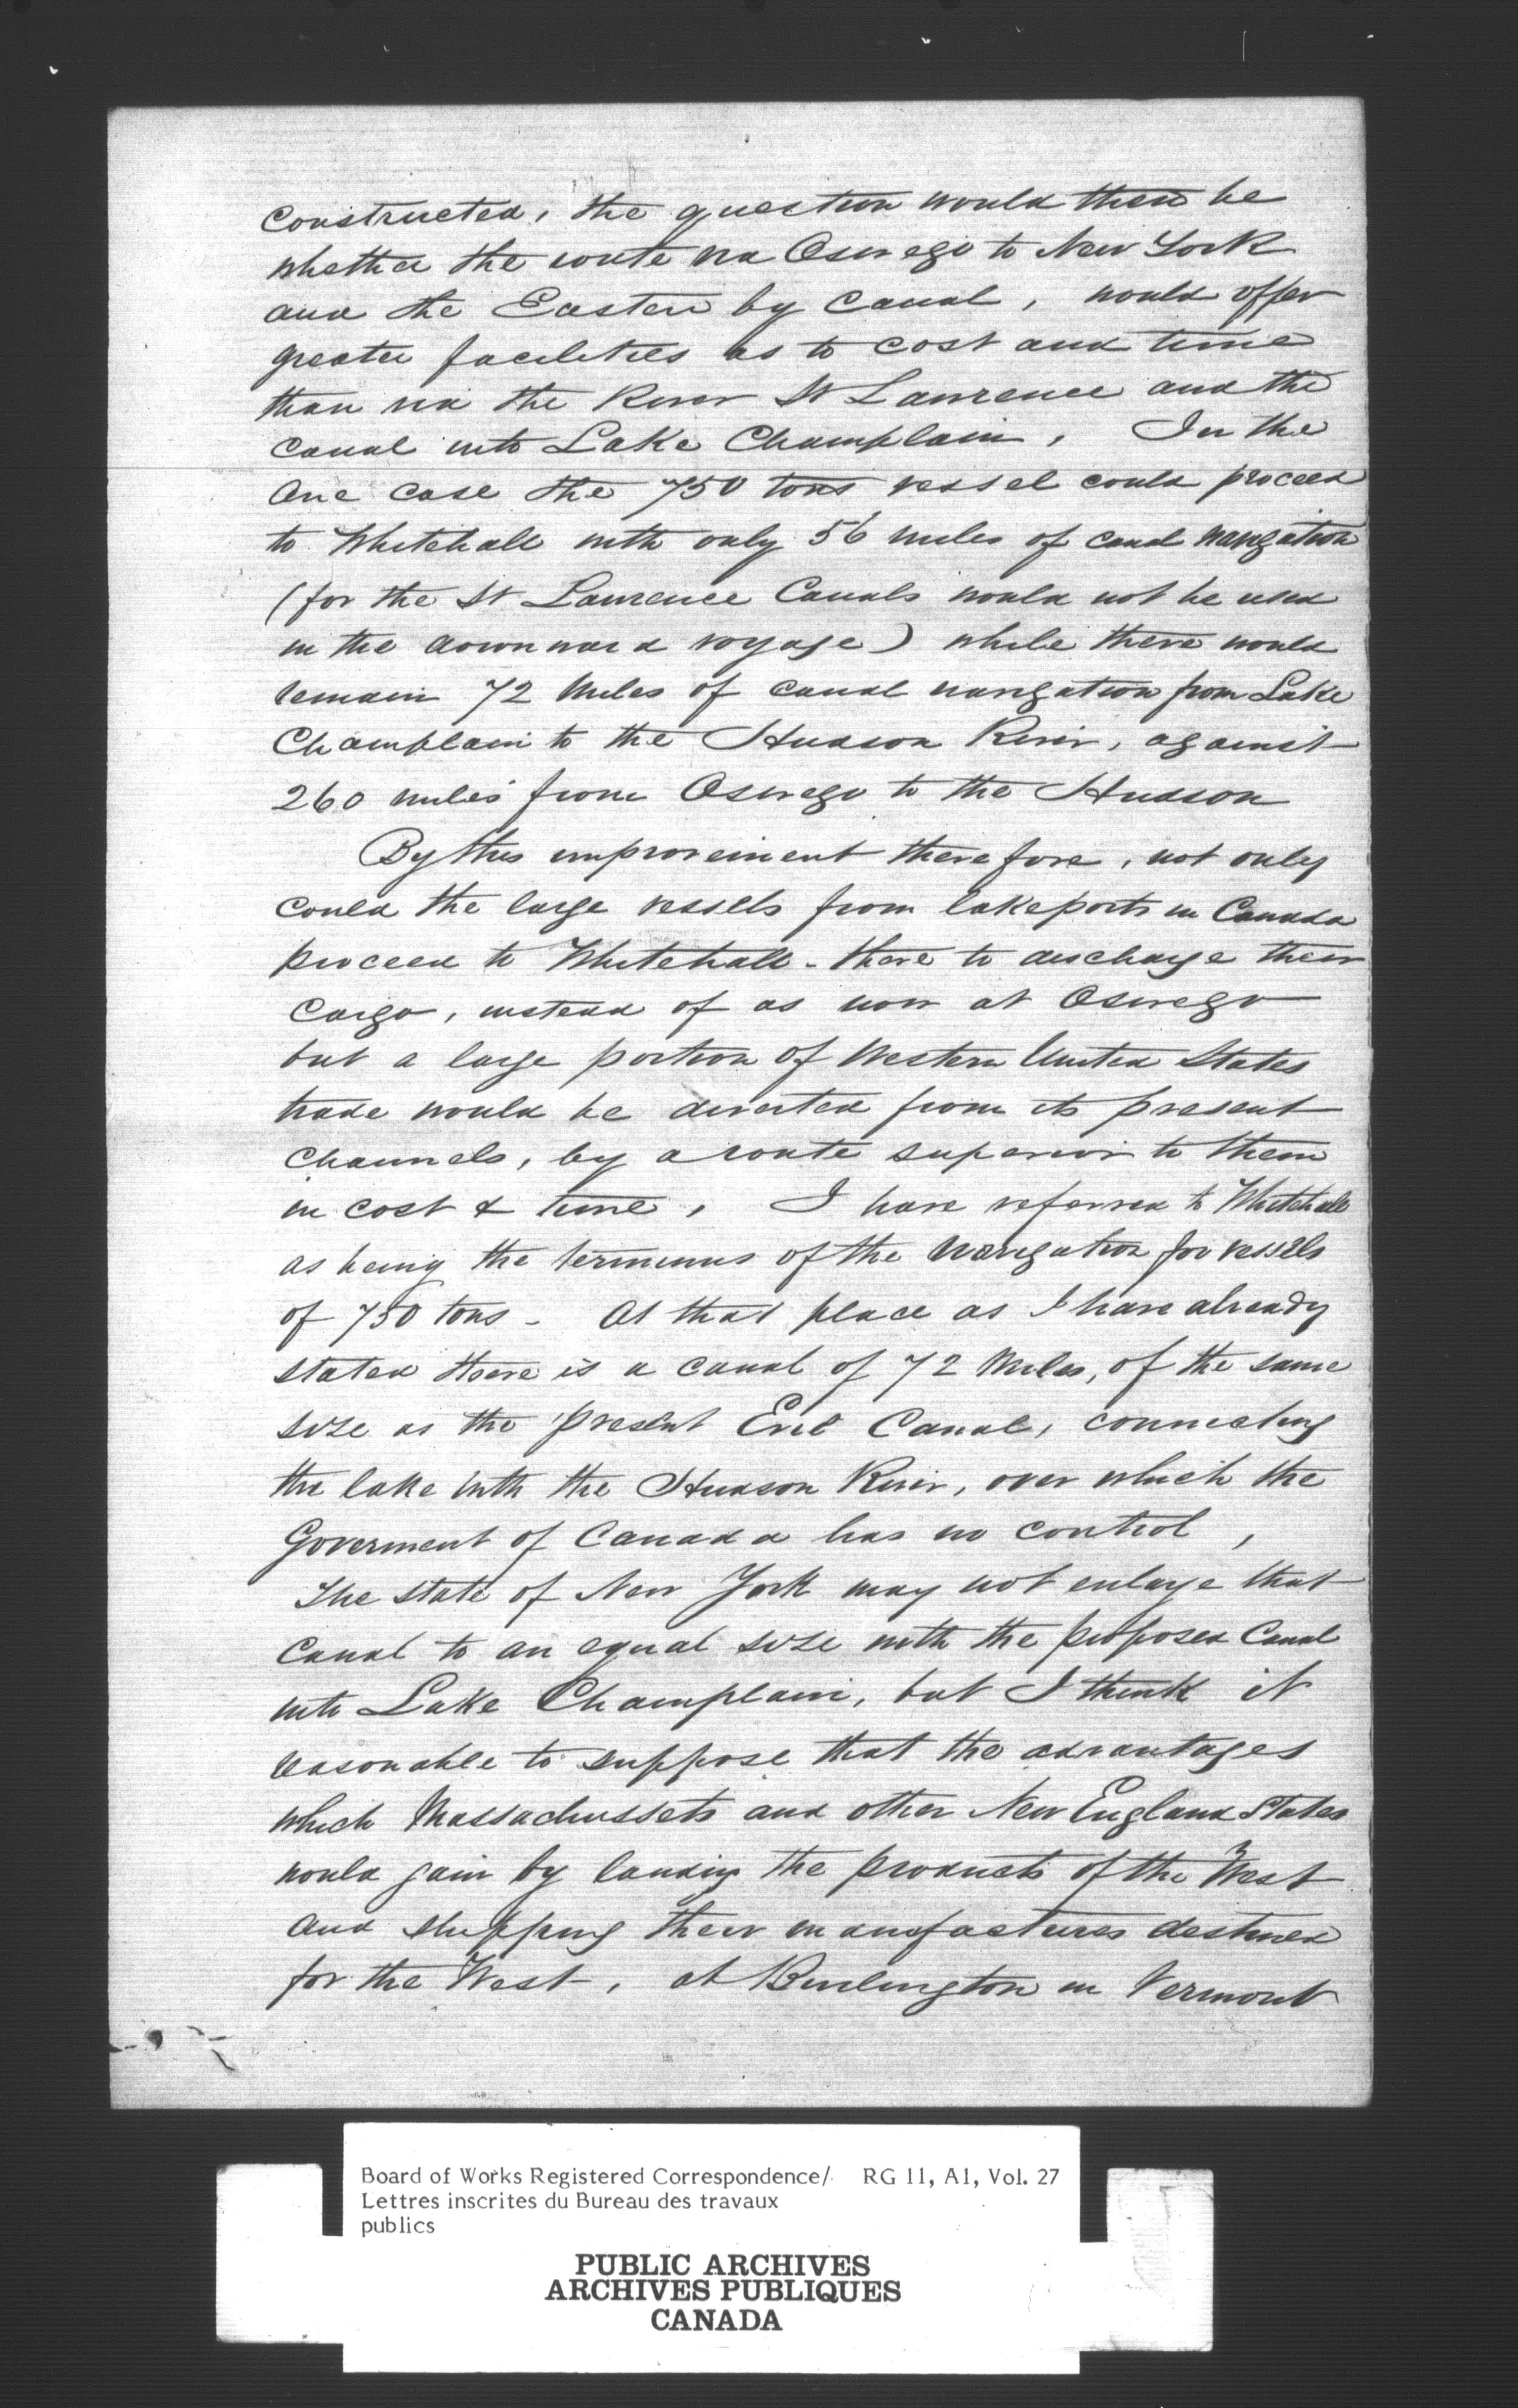 constructed, the question would then be
whether the route via Oswego to New York
and the Eastern by canal, would offer
greater facilities as to cost and time
than via the River St Lawrence and the
canal into Lake Champlain. In the
one case the 750 tons vessel could proceed
to Whitehall with only 56 miles of canal navigation
(for the St Lawrence Canals would not be used
in the downward voyage) while there would
remain 72 miles of canal navigation from Lake
Champlain to the Hudson River, against
260 miles from Oswego to the Hudson
By this improvement therefore, not only
could the large vessels from lakeports in Canada
proceed to Whitehall - there to discharge their
cargo, instead of as now at Oswego
but a large portion of Western United States
trade would be diverted from its present
channels, by a route superior to them
in cost & time. I have referred to Whitehall
as being the terminus of the navigation for vessels
of 750 tons - At that place as I have already
stated there is a canal of 72 miles, of the same
size as the present Erie Canal, connecting
the lake with the Hudson River, over which the
Goverment of Canada has no control,
The State of New York may not enlarge that
Canal to an equal size with the proposed Canal
into Lake Champlain, but I think it
reasonable to suppose that the advantages
which Massachussets and other New England States
would gain by landing the products of the West
and shipping their manufactures destined
for the West, at Burlington in Vermont
Board of Works Registered Correspondence/ RG 11, A1, Vol. 27
Lettres inscrites du Bureau des travaux
publics
PUBLIC ARCHIVES
ARCHIVES PUBLIQUES
CANADA